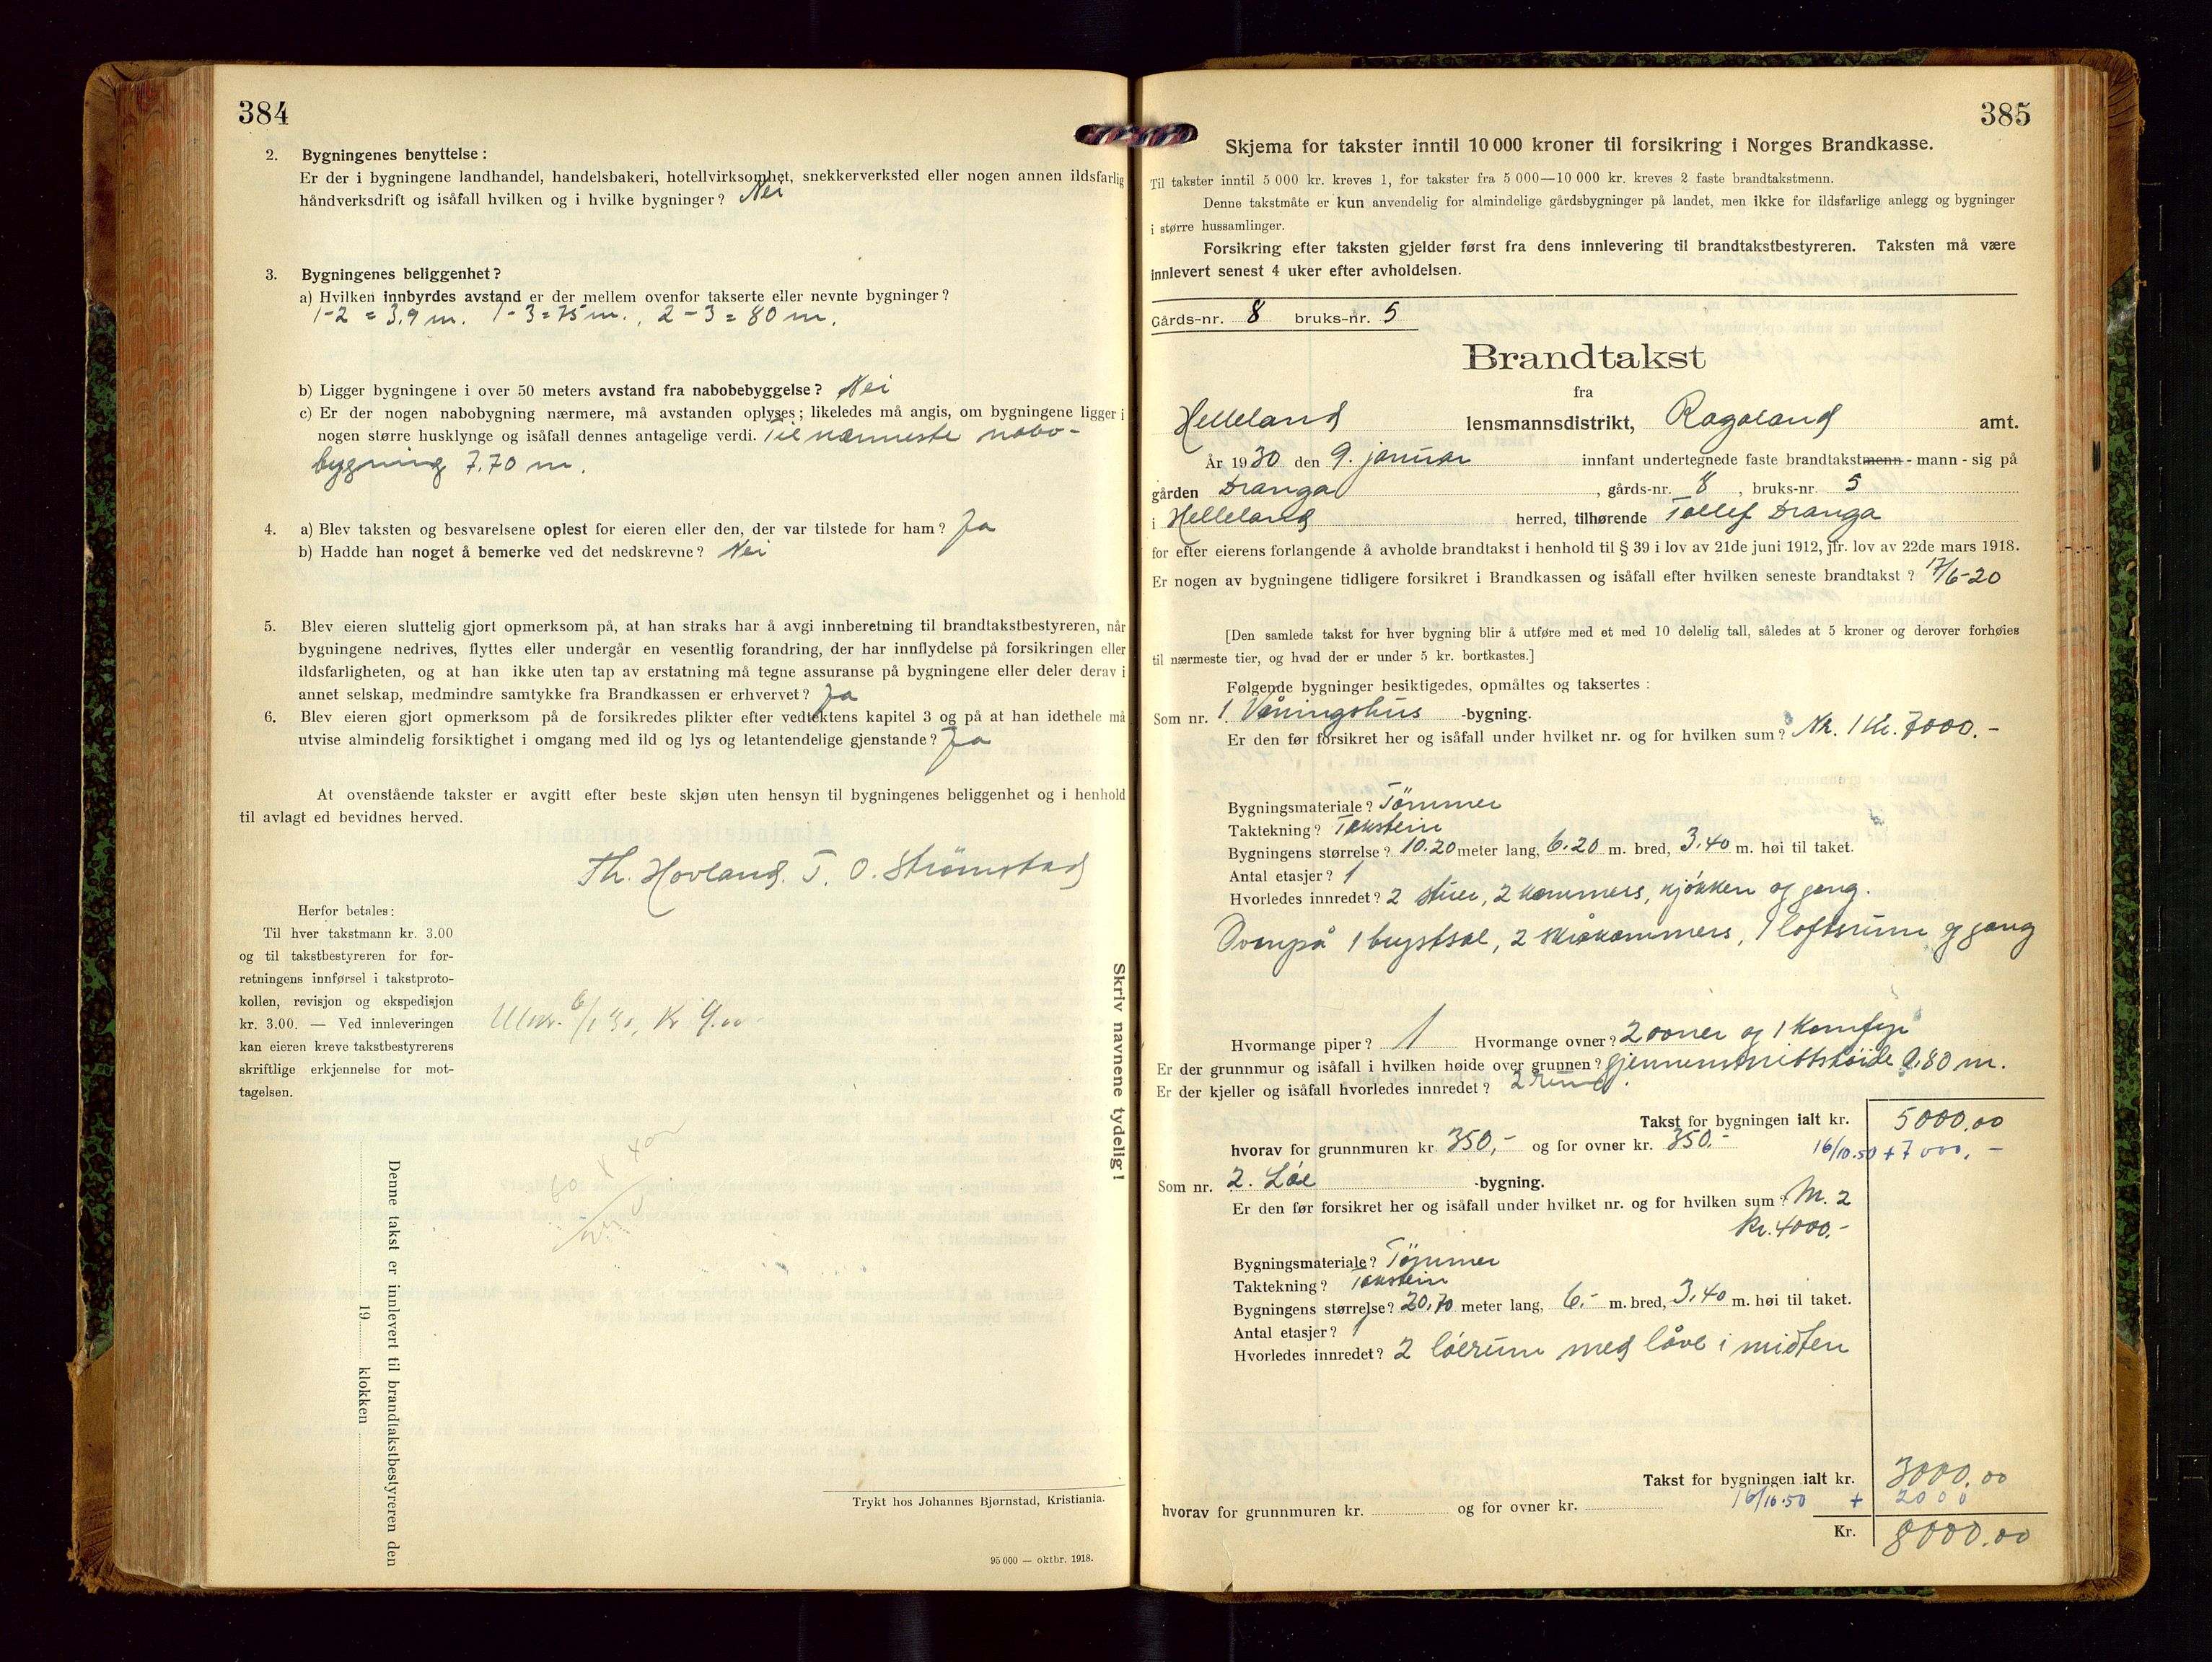 384
2. Bygningenes benyttelse:
Er der i bygningene landhandel, handelsbakeri, hotellvirksomhet, snekkerverksted eller nogen annen ildsfarlig
håndverksdrift og isåfall hvilken og i hvilke bygninger? Nei
3. Bygningenes beliggenhet?
a) Hvilken innbyrdes avstand er der mellem ovenfor takserte eller nevnte bygninger?
1-2 = 3,9 m. 1-3 = 75 m., 2-3 = 80 m.
b) Ligger bygningene i over 50 meters avstand fra nabobebyggelse? Nei
c) Er der nogen nabobygning nærmere, må avstanden oplyses; likeledes må angis, om bygningene ligger i
nogen større husklynge og isåfall dennes antagelige verdi. Til nærmeste nabo-
bygning 7.70 m.
4. a) Blev taksten og besvarelsene oplest for eieren eller den, der var tilstede for ham? Ja
b) Hadde han noget å bemerke ved det nedskrevne? Nei
5. Blev eieren sluttelig gjort opmerksom på, at han straks har å avgi innberetning til brandtakstbestyreren, når
bygningene nedrives, flyttes eller undergår en vesentlig forandring, der har innflydelse på forsikringen eller
ildsfarligheten, og at han ikke uten tap av erstatning må tegne assuranse på bygningene eller deler derav i
annet selskap, medmindre samtykke fra Brandkassen er erhvervet? Ja
6. Blev eieren gjort opmerksom på de forsikredes plikter efter vedtektens kapitel 3 og på at han idethele må
utvise almindelig forsiktighet i omgang med ild og lys og letantendelige gjenstande? Ja
At ovenstående takster er avgitt efter beste skjøn uten hensyn til bygningenes beliggenhet og i henhold
til avlagt ed bevidnes herved.
Th. Hovland. T. O. Strømstad
Herfor betales:
Til hver takstmann kr. 3.00
og til takstbestyreren for for-
retningens innførsel i takstproto-
kollen, revisjon og ekspedisjon
kr. 3.00. — Ved innleveringen
kan eieren kreve takstbestyrerens
skriftlige erkjennelse for mot-
tagelsen.
Kr 9.00
Skriv navnene tydelig!
Denne takst er innlevert til brandtakstbestyreren den
19 klokken
Trykt hos Johannes Bjørnstad, Kristiania.
95 000 — oktbr. 1918.
385
Skjema for takster inntil 10 000 kroner til forsikring i Norges Brandkasse.
Til takster inntil 5 000 kr. kreves 1, for takster fra 5 000—10 000 kr. kreves 2 faste brandtakstmenn.
Denne takstmåte er kun anvendelig for almindelige gårdsbygninger på landet, men ikke for ildsfarlige anlegg og bygninger
i større hussamlinger.
Forsikring efter taksten gjelder først fra dens innlevering til brandtakstbestyreren. Taksten må være
innlevert senest 4 uker efter avholdelsen.
Gårds-nr. 8 bruks-nr. 5
Brandtakst
fra
Helleland lensmannsdistrikt, Rogaland amt.
År 1930 den 9. januar innfant undertegnede faste brandtakstmenn - mann - sig på
gården Dranga, gårds-nr. 8, bruks-nr. 5
i Helleland herred, tilhørende Tollef Dranga
for efter eierens forlangende å avholde brandtakst i henhold til § 39 i lov av 21de juni 1912, jfr. lov av 22de mars 1918.
Er nogen av bygningene tidligere forsikret i Brandkassen og isåfall efter hvilken seneste brandtakst? 17/6-20
[Den samlede takst for hver bygning blir å utføre med et med 10 delelig tall, således at 5 kroner og derover forhøies
til nærmeste tier, og hvad der er under 5 kr. bortkastes.]
Følgende bygninger besiktigedes, opmåltes og taksertes:
Som nr. 1. Våningshus -bygning.
Er den før forsikret her og isåfall under hvilket nr. og for hvilken sum? Nr. 1 Kr. 7000.-
Bygningsmateriale? Tömmer
Taktekning? Takstein
Bygningens størrelse? 10.20 meter lang, 6.20 m. bred, 3.40 m. høi til taket.
Antal etasjer? 1
Hvorledes innredet? 2 stuer, 2 kammers, kjøkken og gang.
Ovenpå 1 brystsal, 2 skråkammers, 1 loftsrum og gang
Hvormange piper? 1 Hvormange ovner? 2 ovner og 1 Komfyr
Er der grunnmur og isåfall i hvilken høide over grunnen? Gjennemsnittshøide 0.80 m.
Er der kjeller og isåfall hvorledes innredet? 2 rum.
Takst for bygningen ialt kr. 5000.00
hvorav for grunnmuren kr. 350,- og for ovner kr. 350.- 16/10.50 + 7000.-
Som nr. 2. Löe -bygning.
Er den før forsikret her og isåfall under hvilket nr. og for hvilken sum? Nr. 2
Kr. 4000.-
Bygningsmateriale? Tömmer
Taktekning? Takstein
Bygningens størrelse? 20,70 meter lang, 6.- m. bred, 3.40 m. høi til taket.
Antal etasjer? 1
Hvorledes innredet? 2 löerum med låve i midten
Takst for bygningen ialt kr. 3000.00
16/10.50 + 2000
hvorav for grunnmuren kr. og for ovner kr.
Kr. 8000.00